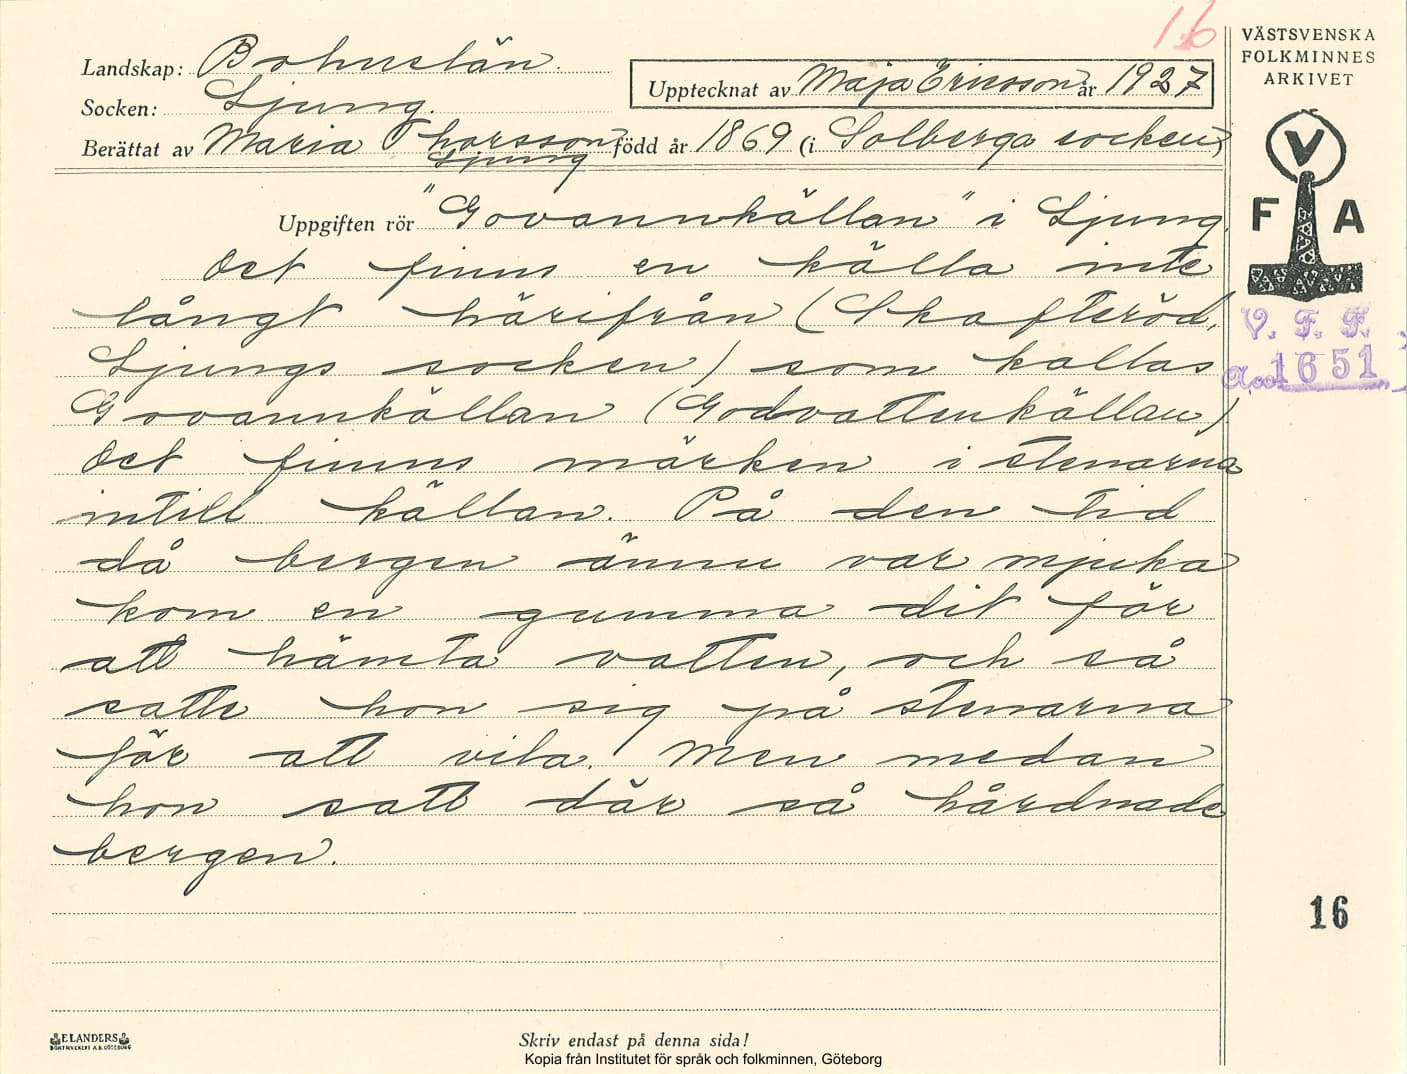 16
VÄSTSVENSKA
FOLKMINNES
ARKIVET
Landskap: Bohuslän.
Upptecknat av Maja Ericsson år 1927
Socken: Ljung.
Berättat av Maria Thorsson, född år 1869 (i Solberga socken)
Ljung
V
F A
Uppgiften rör "Govannkällan" i Ljung.
Det finns en källa inte
långt härifrån (Skafteröd,
Ljungs socken) som kallas
Govannkällan (Godvattenkällan).
Det finns märken i stenarna
intill källan. På den tid
då bergen ännu var mjuka
kom en gumma dit för
att hämta vatten, och så
satte hon sig på stenarna
för att vila. Men medan
hon satt där så hårdnade
bergen.
V. F. F.
Acc. 1651
16
ELANDERS
BOKTRYCKERI A.B. GÖTEBORG
Skriv endast på denna sida!
Kopia från Institutet för språk och folkminnen, Göteborg